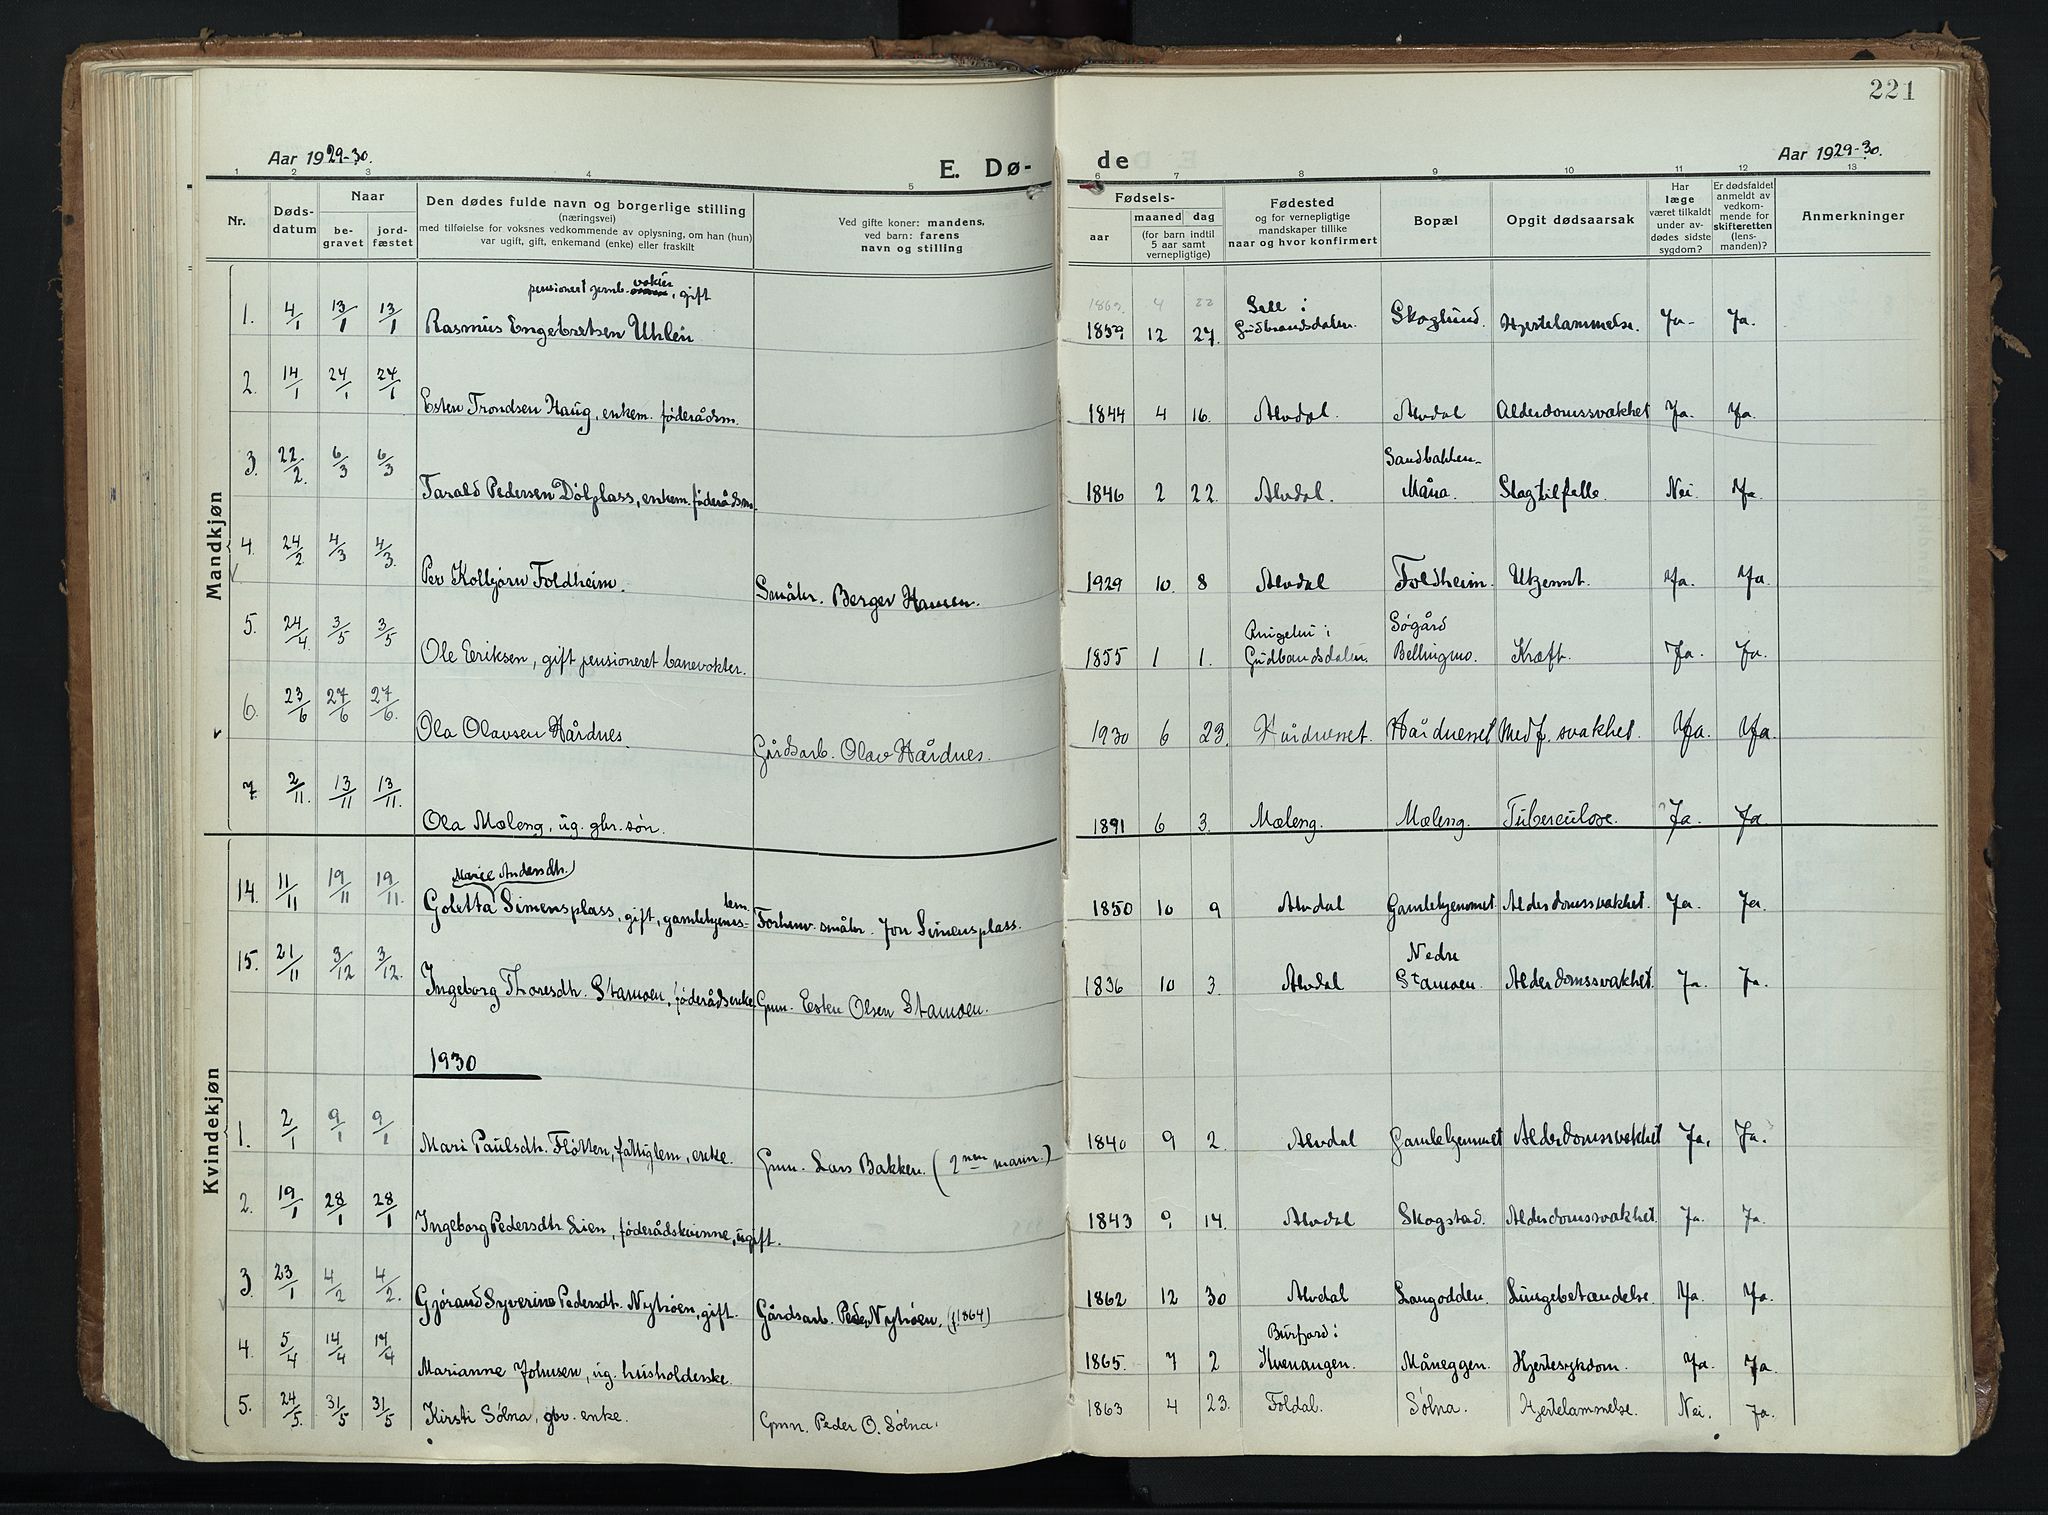 221
Aar 1929-30.
E. Dø-
de
Aar 1929-30.
1 2 3 4 5 6 7 8 9 10 11 12 13
Nr.
Døds-
datum
Naar
be-
gravet
jord-
fæstet
Den dødes fulde navn og borgerlige stilling
(næringsvei)
med tilføielse for voksnes vedkommende av oplysning, om han (hun)
var ugift, gift, enkemand (enke) eller fraskilt
Ved gifte koner: mandens,
ved barn: farens
navn og stilling
Fødsels-
aar
maaned
dag
(for barn indtil
5 aar samt
vernepligtige)
Fødested
og for vernepligtige
mandskaper tillike
naar og hvor konfirmert
Bopæl
Opgit dødsaarsak
Har
læge
været tilkaldt
under av-
dødes sidste
sygdom?
Er dødsfaldet
anmeldt av
vedkom-
mende for
skifteretten
(lens-
manden)?
Anmerkninger
Mandkjøn
pensionert jernb. vokter, gift
1869 4 22 Sell i
1. 4/1 13/1 13/1 Rasmus Engebretsen Uhlen 1859 12 27. Gudbrandsdalen. Skoglund. Hjertelammelse. Ja. Ja.
2. 14/1 24/1 24/1 Esten Trondsen Haug, enkem. føderådsm. 1844 4 16. Alvdal. Alvdal Alderdomssvakhet Ja. Ja.
Sandbakken-
3. 22/2. 6/3 6/3 Tarald Pedersen Dølplass, enkem. føderådsm. 1846 2 22. Alvdal. Måna. Slagtilfelle. Nei Ja.
4. 24/2 4/3 4/3 Per Kolbjørn Foldheim. Småbr. Berger Hansen. 1929 10. 8 Alvdal Foldheim. Ukjennt. Ja. Ja.
Ringebu i Søgård
5. 24/4 3/5 3/5 Ole Eriksen, gift pensioneret banevokter. 1855 1 1. Gudbandsdalen. Bellingmo. Kræft. Ja. Ja.
6. 23/6 27/6 27/6. Ola Olavsen Hårdnes. Gårdsarb. Olav Hårdnes. 1930 6 23. Hårdneset. Hårdneset Medf. svakhet. Ja. Ja.
7. 2/11. 13/11 13/11. Ola Mæleng, ug. gbr.søn. 1891 6 3. Mæleng. Mæleng. Tuberculose. Ja. Ja
Kvindekjøn
Marie Andersdtr.
lem
14. 11/11 19/11 19/11. Goletta Simensplass, gift, gamlehjems- Forhenv. småbr. Jon Simensplass. 1850 10 9 Alvdal Gamlehjemmet. Alderdomssvakhet. Ja. Ja.
Nedre
15. 21/11 3/12 3/12. Ingeborg Thoresdtr. Stamoen, føderådsenke Gmn. Esten Olsen Stamoen. 1836 10 3. Alvdal Stamoen. Alderdomssvakhet. Ja. Ja.
1930
1. 2/1 9/1 9/1 Mari Paulsdtr. Fløtten, fattiglem, enke. Gmn. Lars Bakken. (2nen mann.) 1840 9 2. Alvdal Gamlehjemmet Alderdomssvakhet Ja. Ja.
2. 19/1 28/1 28/1 Ingeborg Pedersdtr. Lien, føderådskvinne, ugift. 1843 9 14. Alvdal Skogstad. Alderdomssvakhet. Ja. Ja.
3. 23/1 4/2 4/2. Gjørand Syverine Pedersdtr. Nytrøen, gift. Gårdsarb. Peder Nytrøen. (f. 1864) 1862 12 30 Alvdal Langodden. Lungebetændelse. Ja. Ja.
Burfjord i
4. 5/4 14/4 14/4 Marianne Johnsen, ug. husholderske. 1865. 7 2 Kvenangen. Måneggen. Hjertesykdom. Ja. Ja.
5. 24/5. 31/5 31/5 Kirsti Sølna, gbr. enke. Gmn. Peder O. Sølna. 1863 4 23. Foldal. Sølna. Hjertelammelse. Nei. Ja.